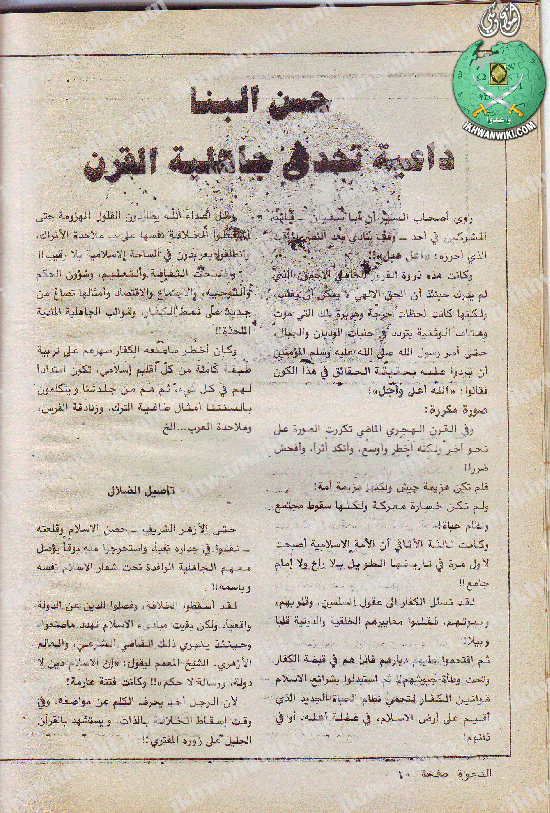 IKHWANWIKI.COM
حسن البنا
داعية تحدى جاهلية القرن
روى أصحاب السير أن أبا سفيان ــ قائد
المشركين في أحد ــ وقف ينادي بعد النصر
الذي أحرزه: «اعل هبل»!!
وكانت هذه ثروة الفرح الجاهلي الأحمق، الذي
لم يدرك حينئذ أن الحق الإلهي لا يمكن أن يغلب،
ولكنها كانت لحظات حرجة ومريرة تلك التي مرت
وهتاف الوثنية يتردد في جنبات الوديان والجبال،
حتى أمر رسول الله صلى الله عليه وسلم المؤمنين
أن يردوا عليه بحقيقة الحقائق في هذا الكون
فقالوا: «الله أعلى وأجل»!
صورة مكررة:
وفي القرن الهجري الماضي تكررت الصورة على
نحو آخر ولكنه أخطر وأوسع، وأنكد أثراً، وأفحش
ضررا!
فلم تكن هزيمة جيش ولكنها هزيمة أمة!
ولم تكن خسارة معركة ولكنها سقوط مجتمع
وكانت ثالثة الأثافي أن الأمة الإسلامية أصبحت
لأول مرة في تاريخها الطويل بلا راع ولا إمام
جامع!!
لقد تسلل الكفار إلى عقول المسلمين، وقلوبهم،
وبيوتهم، فقلبوا معاييرهم الخلقية والدينية قلبا
وبيلا!
ثم اقتحموا عليهم ديارهم فإذا هم في قبضة الكفار
وتحت وطأة جيوشهم! ثم استبدلوا بشرائع الإسلام
قوانين الكفار لتحمي نظام الحياة الجديد الذي
أقيم على أرض الإسلام، في غفلة أهله، أو في
وظل أعداء الله يطاردون الفلول المهزومة حتى
الخلافة نفسها على يد ملاحدة الأتراك،
يعربدون في الساحة الإسلامية بلا رقيب!!
الثقافة والتعليم، وشؤون الحكم
والتوجيه، والاجتماع والاقتصاد وأمثالها تصاغ من
جديد على نمط الكفار، وقوالب الجاهلية المادية
الملحدة!!
وكان أخطر ما صنعه الكفار سهرهم على تربية
طبقة كاملة من كل إقليم إسلامي، تكون امتدادا
لهم في كل شيء، ثم هم من جلدتنا ويتكلمون
بألسنتنا أمثال طاغية الترك، وزنادقة الفرس،
وملاحدة العرب... الخ
تأصيل الضلال
حتى الأزهر الشريف ــ حصن الإسلام وقلعته
ــ نقبوا في جداره نقباً، واستخرجوا منه بوقاً يؤصل
معهم الجاهلية الوافدة تحت شعار الإسلام نفسه
وباسمه!!
لقد أسقطوا الخلافة، وفصلوا الدين عن الدولة
واقعيا، ولكن بقيت مبادىء الإسلام تهدد ما صنعوا،
وحينئذ ينبري ذلك القاضي الشرعي، والعالم
الأزهري، الشيخ المعمم ليقول: «إن الإسلام دين لا
دولة، ورسالة لا حكم»!! وكانت فتنة عارمة!
لأن الرجل أخذ يحرف الكلم عن مواضعه، وفي
وقت إسقاط الخلافة بالذات، ويستشهد بالقرآن
الجليل على زوره المفترى!!
الدعوة صفحة ١٠